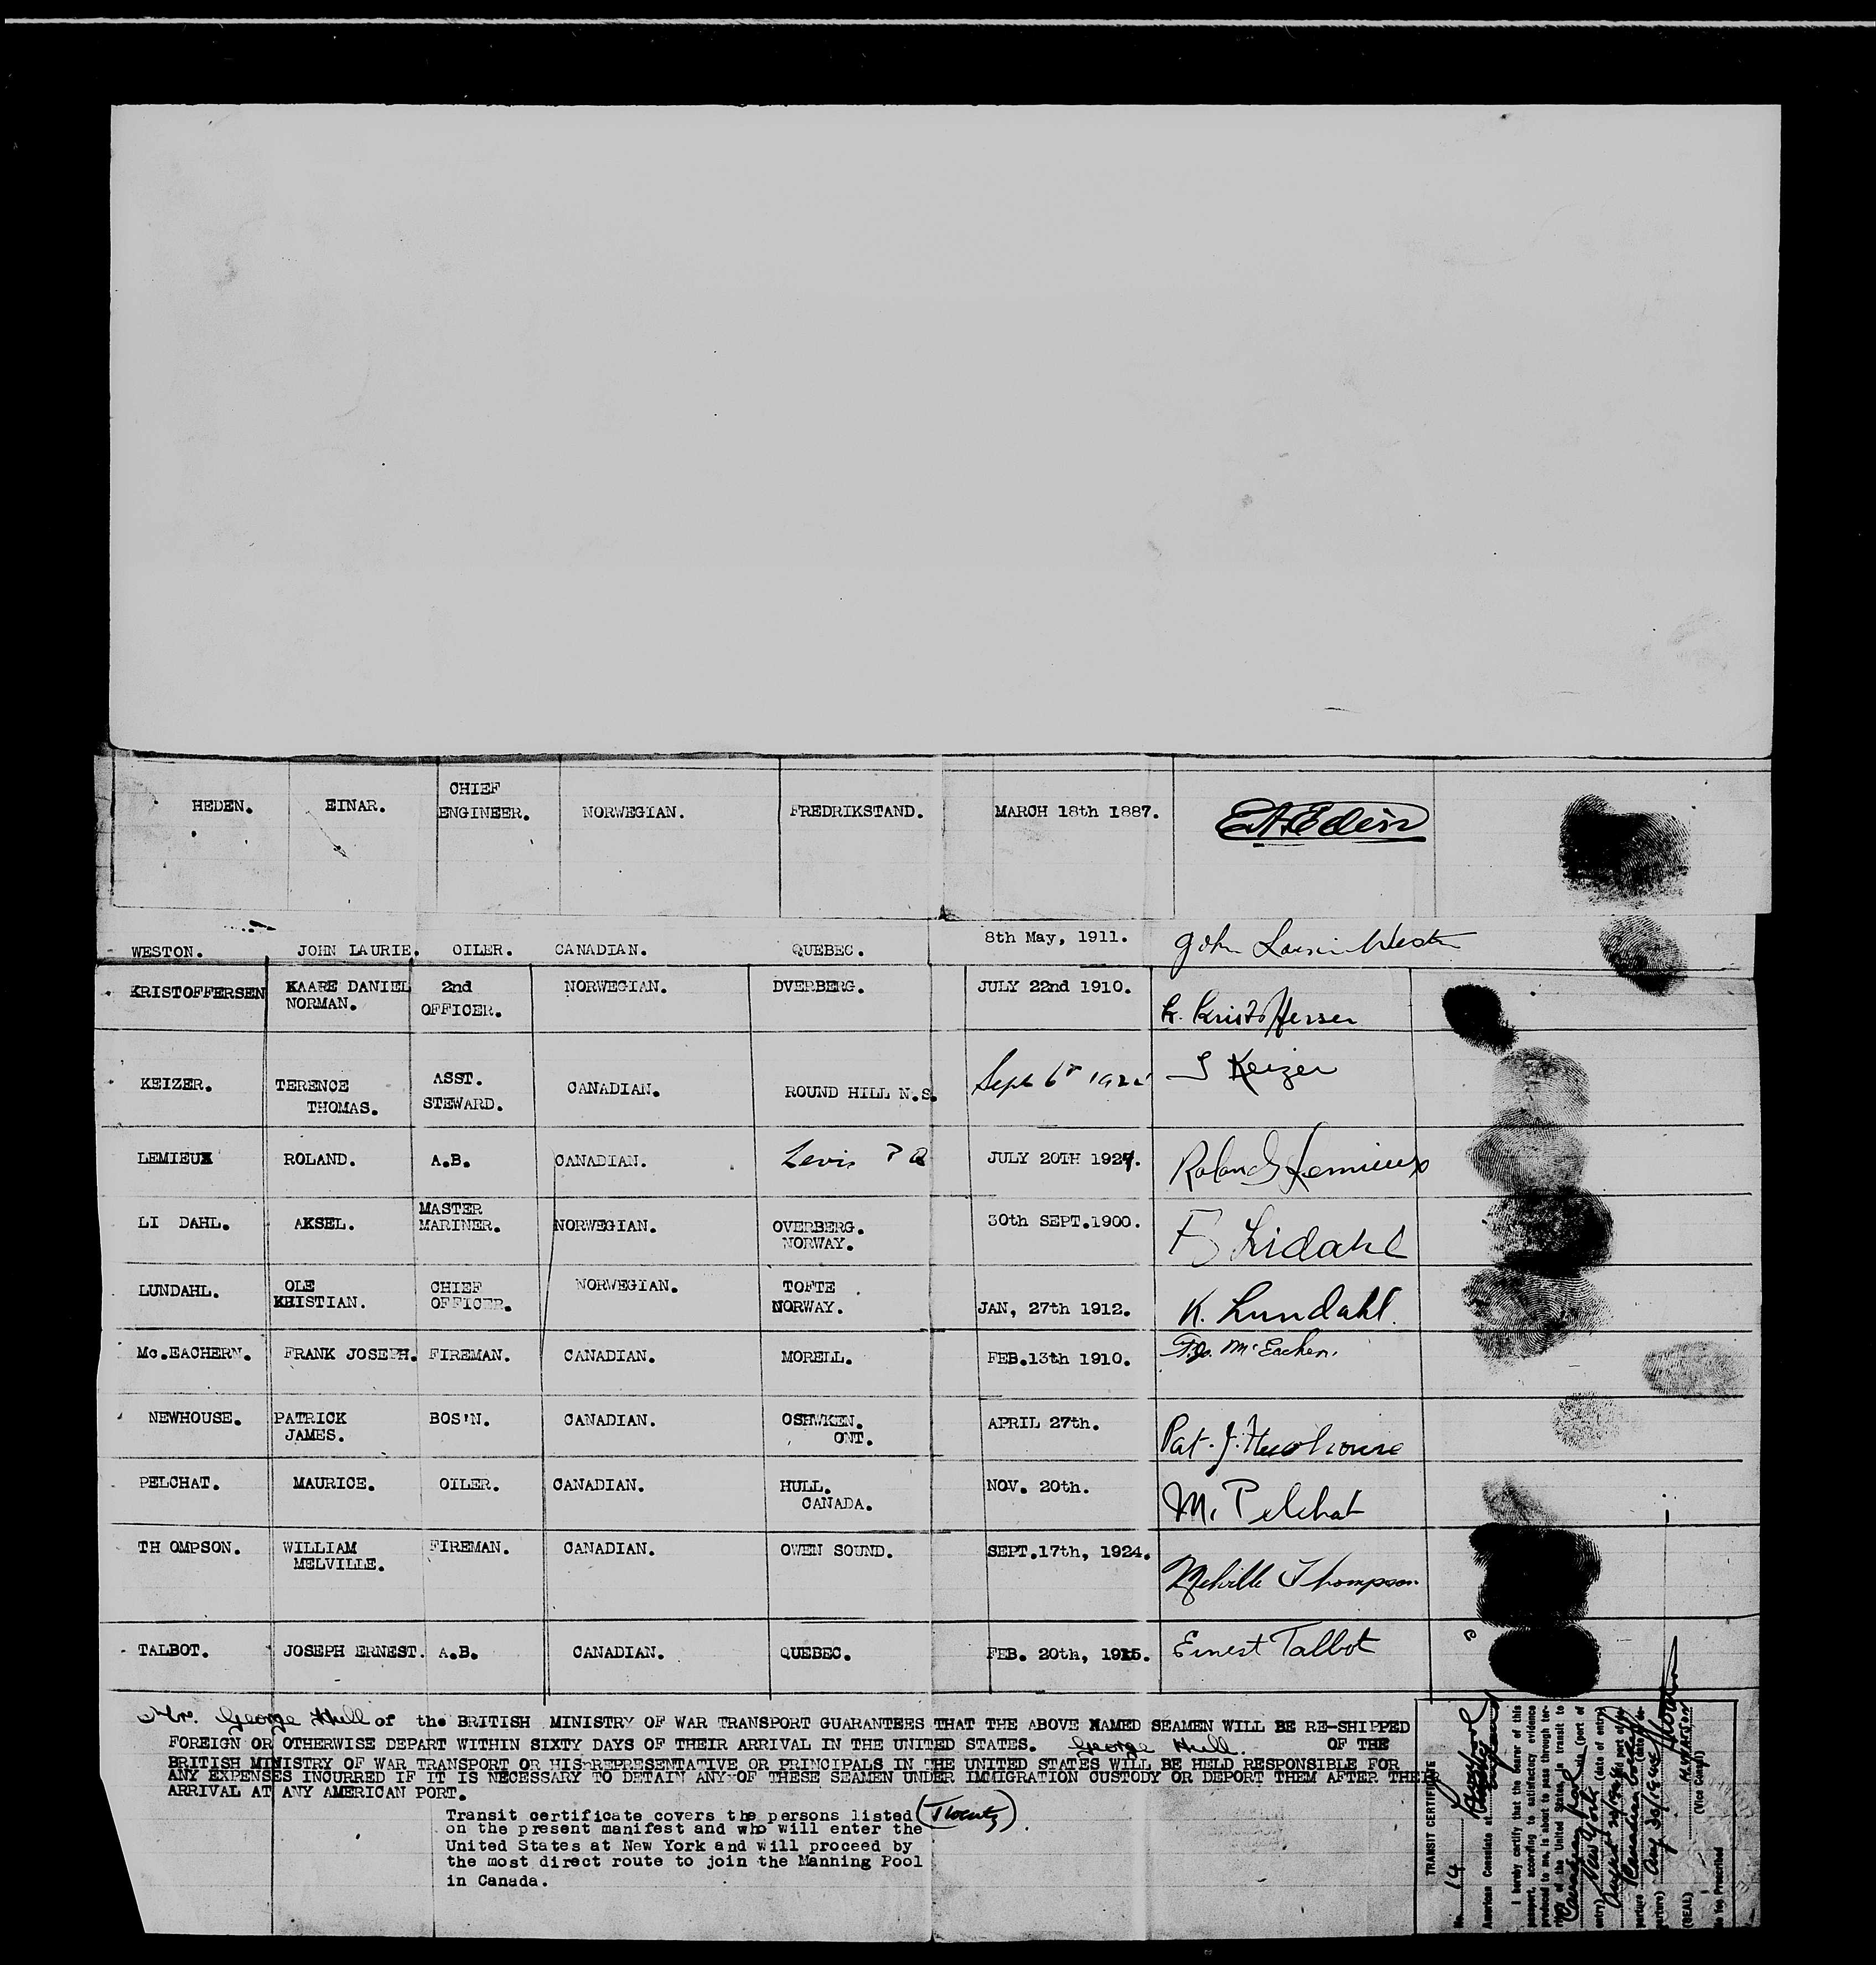 HEDEN. EINAR. CHIEF ENGINEER. NORWEGIAN. FREDRIKSTAND. MARCH 18th 1887.
WESTON. JOHN LAURIE. OILER. CANADIAN. QUEBEC. 8th May, 1911. John
KRISTOFFERSEN KAARE DANIEL NORMAN. 2nd OFFICER. NORWEGIAN. DVERBERG. JULY 22nd 1910. K. Kristoffersen
KEIZER. TERENCE THOMAS. ASST. STEWARD. CANADIAN. ROUND HILL N.S. Sept 6 Keizer
LEMIEUX ROLAND. A.B. CANADIAN. Levis P Q JULY 20TH 1924. Roland Lemieux
LI DAHL. AKSEL. MASTER MARINER. NORWEGIAN. OVERBERG. NORWAY. 30th SEPT.1900. Lidahl
LUNDAHL. OLE KRISTIAN. CHIEF OFFICER. NORWEGIAN. TOFTE NORWAY. JAN, 27th 1912. K. Lundahl.
Mc.EACHERN. FRANK JOSEPH. FIREMAN. CANADIAN. MORELL. FEB.13th 1910. F.J. McEachern.
NEWHOUSE. PATRICK JAMES. BOS'N. CANADIAN. OSHWKEN. ONT. APRIL 27th. Pat. J. Newhouse
PELCHAT. MAURICE. OILER. CANADIAN. HULL. CANADA. NOV. 20th. M. Pelchat
TH OMPSON. WILLIAM MELVILLE. FIREMAN. CANADIAN. OWEN SOUND. SEPT.17th, 1924. Melville Thompson
TALBOT. JOSEPH ERNEST. A.B. CANADIAN. QUEBEC. FEB. 20th, 1915. Ernest Talbot
Mr. George Hull of the BRITISH MINISTRY OF WAR TRANSPORT GUARANTEES THAT THE ABOVE NAMED SEAMEN WILL BE RE-SHIPPED
FOREIGN OR OTHERWISE DEPART WITHIN SIXTY DAYS OF THEIR ARRIVAL IN THE UNITED STATES. George Hull. OF THE
BRITISH MINISTRY OF WAR TRANSPORT OR HIS REPRESENTATIVE OR PRINCIPALS IN THE UNITED STATES WILL BE HELD RESPONSIBLE FOR
ANY EXPENSES INCURRED IF IT IS NECESSARY TO DETAIN ANY OF THESE SEAMEN UNDER IMMIGRATION CUSTODY OR DEPORT THEM AFTER THEIR
ARRIVAL AT ANY AMERICAN PORT.
Transit certificate covers the persons listed (Twenty)
on the present manifest and who will enter the
United States at New York and will proceed by
the most direct route to join the Manning Pool
in Canada.
TRANSIT CERTIFICATE
No. 14
American Consulate at
I hereby certify that the bearer of this
passport, according to satisfactory evidence
produced to me, is about to pass through ter-
ritory of the United States, in transit to
(port of
entry) New York (date of entry)
(SEAL)
(Vice Consul)
No fee Prescribed